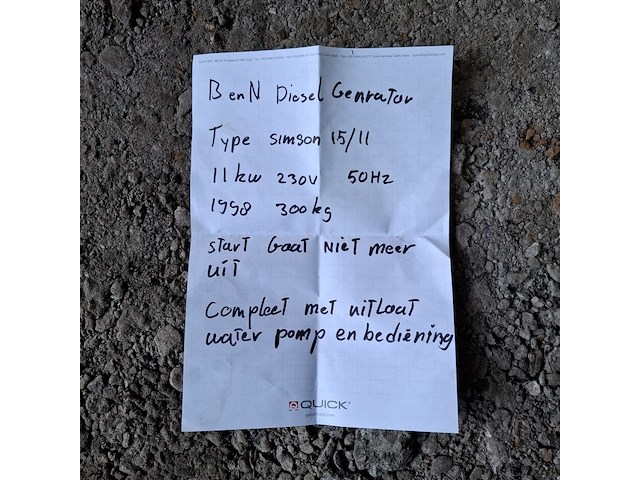 BenN Diesel Genrator
Type simson 15/11
11kw 230V 50Hz
1998 300kg
start Gaat NiET meer
uit
Compleet met uitlaat
water pomp en bediening
QUICK